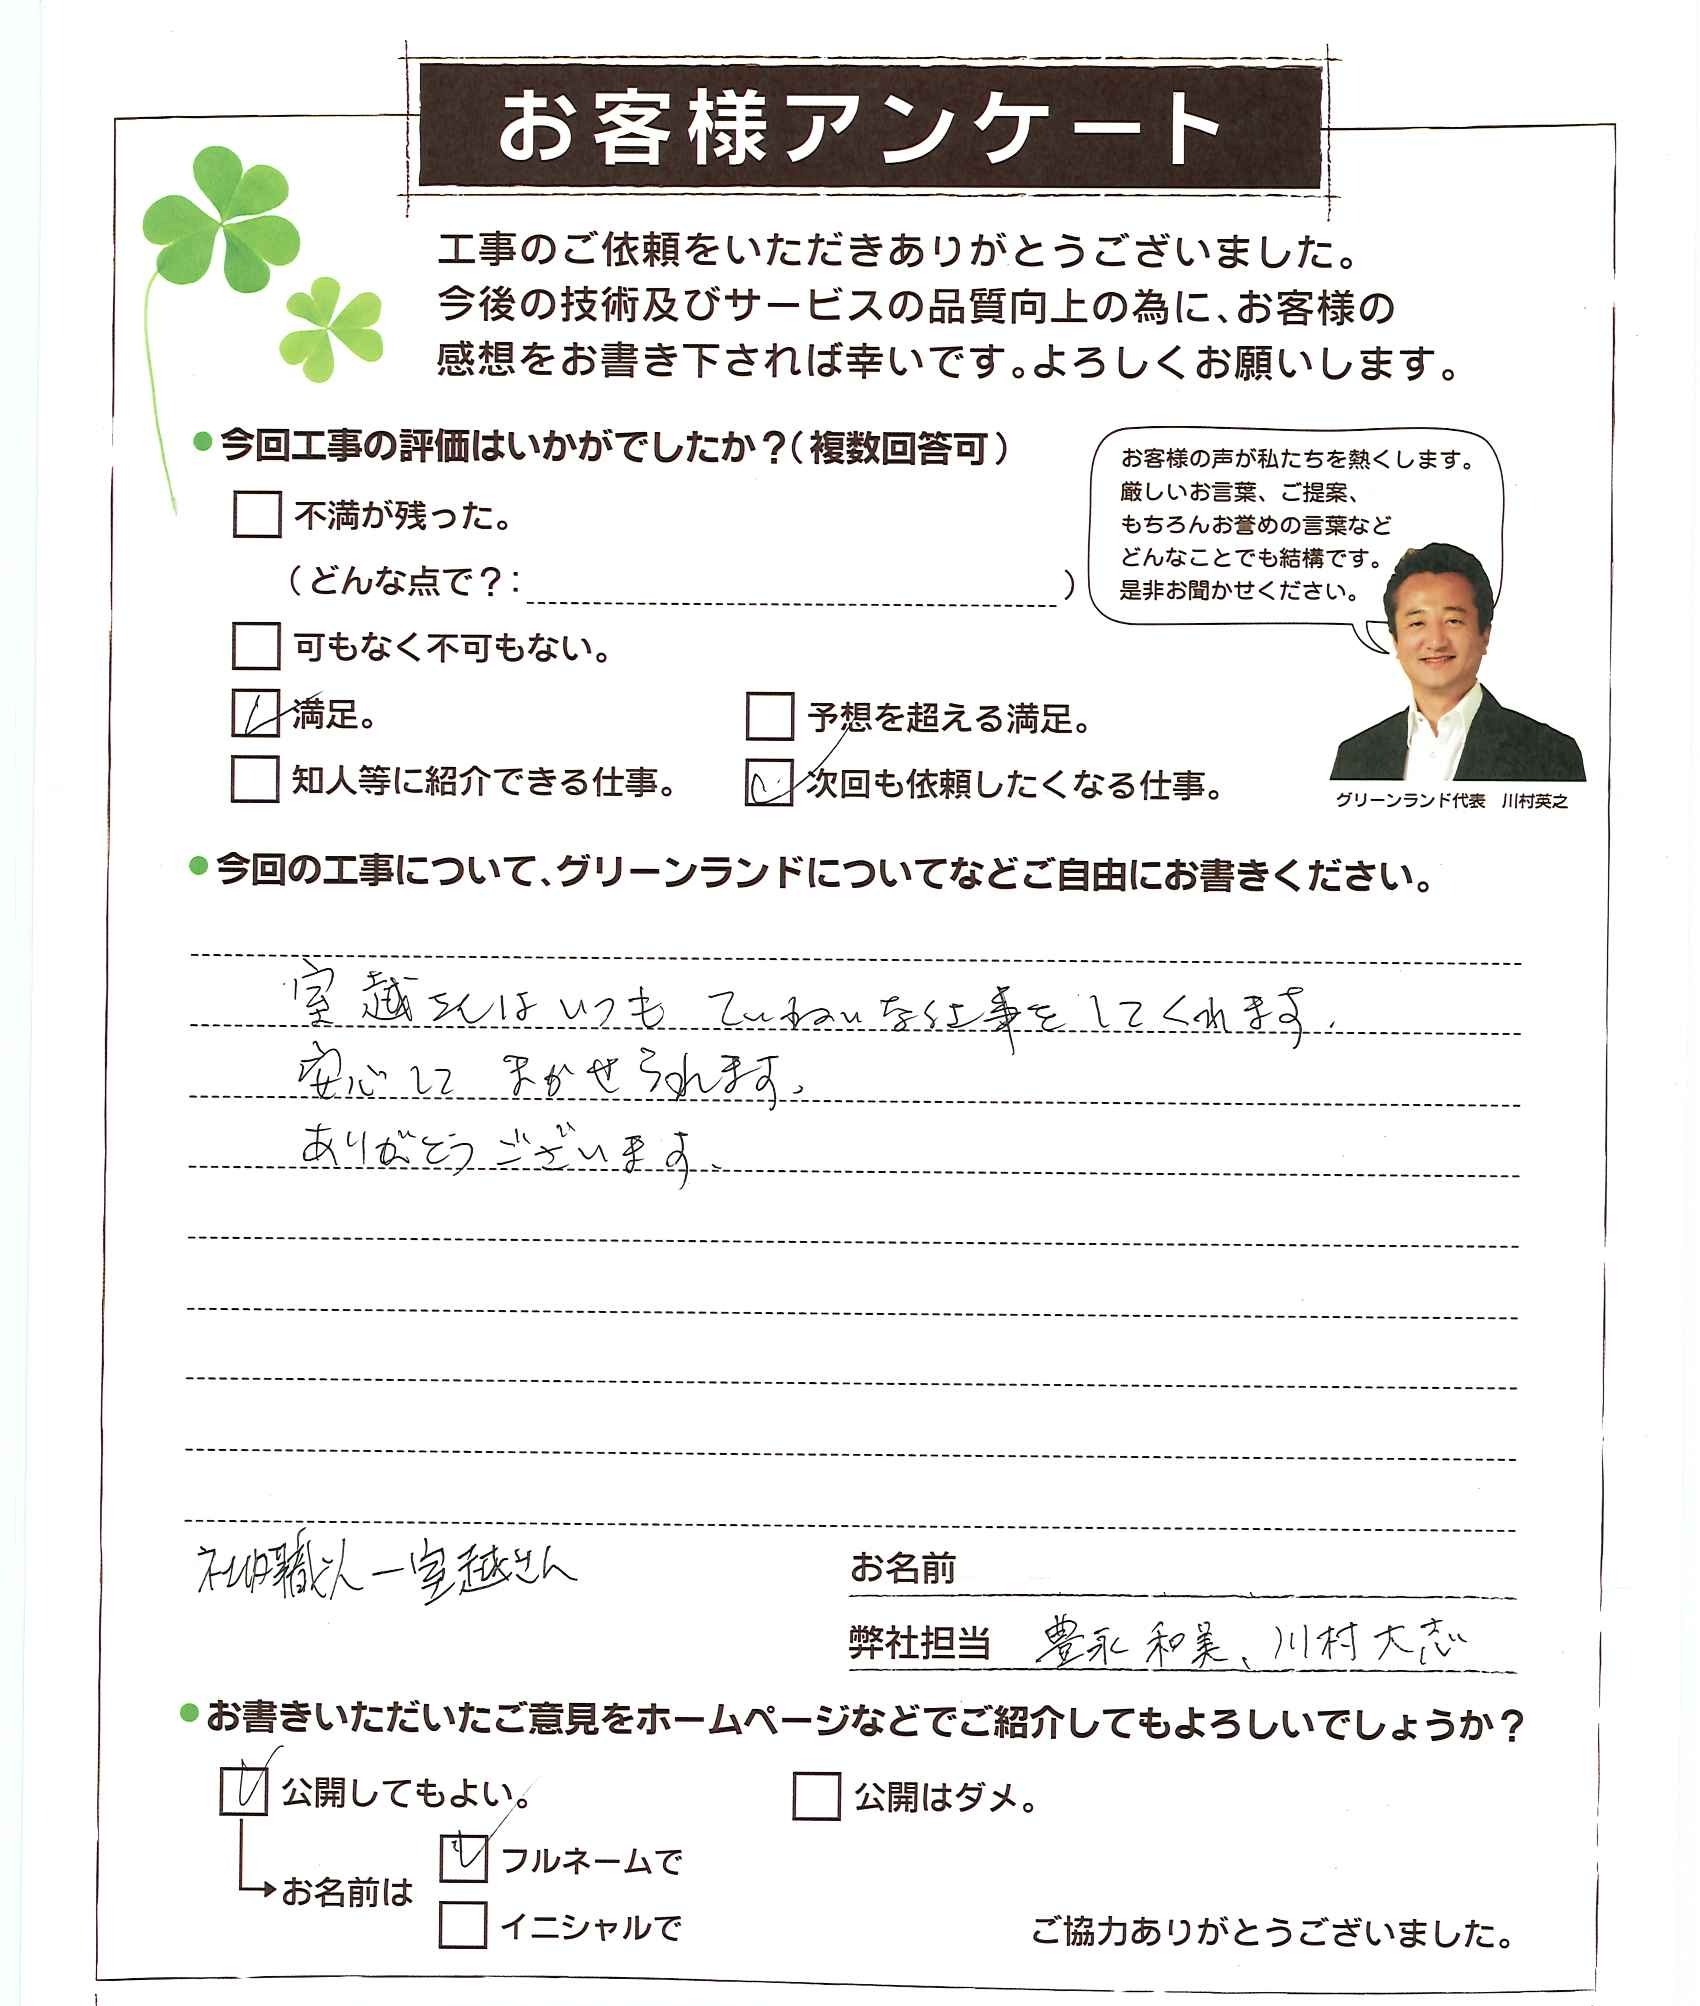 お客様アンケート
工事のご依頼をいただきありがとうございました。
今後の技術及びサービスの品質向上の為に、お客様の
感想をお書き下されば幸いです。よろしくお願いします。
●今回工事の評価はいかがでしたか？（複数回答可）
不満が残った。
（どんな点で？：　）
可もなく不可もない。
満足。
予想を超える満足。
知人等に紹介できる仕事。
次回も依頼したくなる仕事。
お客様の声が私たちを熱くします。
厳しいお言葉、ご提案、
もちろんお誉めの言葉など
どんなことでも結構です。
是非お聞かせください。
グリーンランド代表　川村英之
●今回の工事について、グリーンランドについてなどご自由にお書きください。
室越さんはいつも ていねいな仕事をしてくれます。
安心して まかせられます。
ありがとうございます。
社内職人－室越さん
お名前
弊社担当　豊永 和美、川村大志
●お書きいただいたご意見をホームページなどでご紹介してもよろしいでしょうか？
公開してもよい。
公開はダメ。
お名前は
フルネームで
イニシャルで
ご協力ありがとうございました。